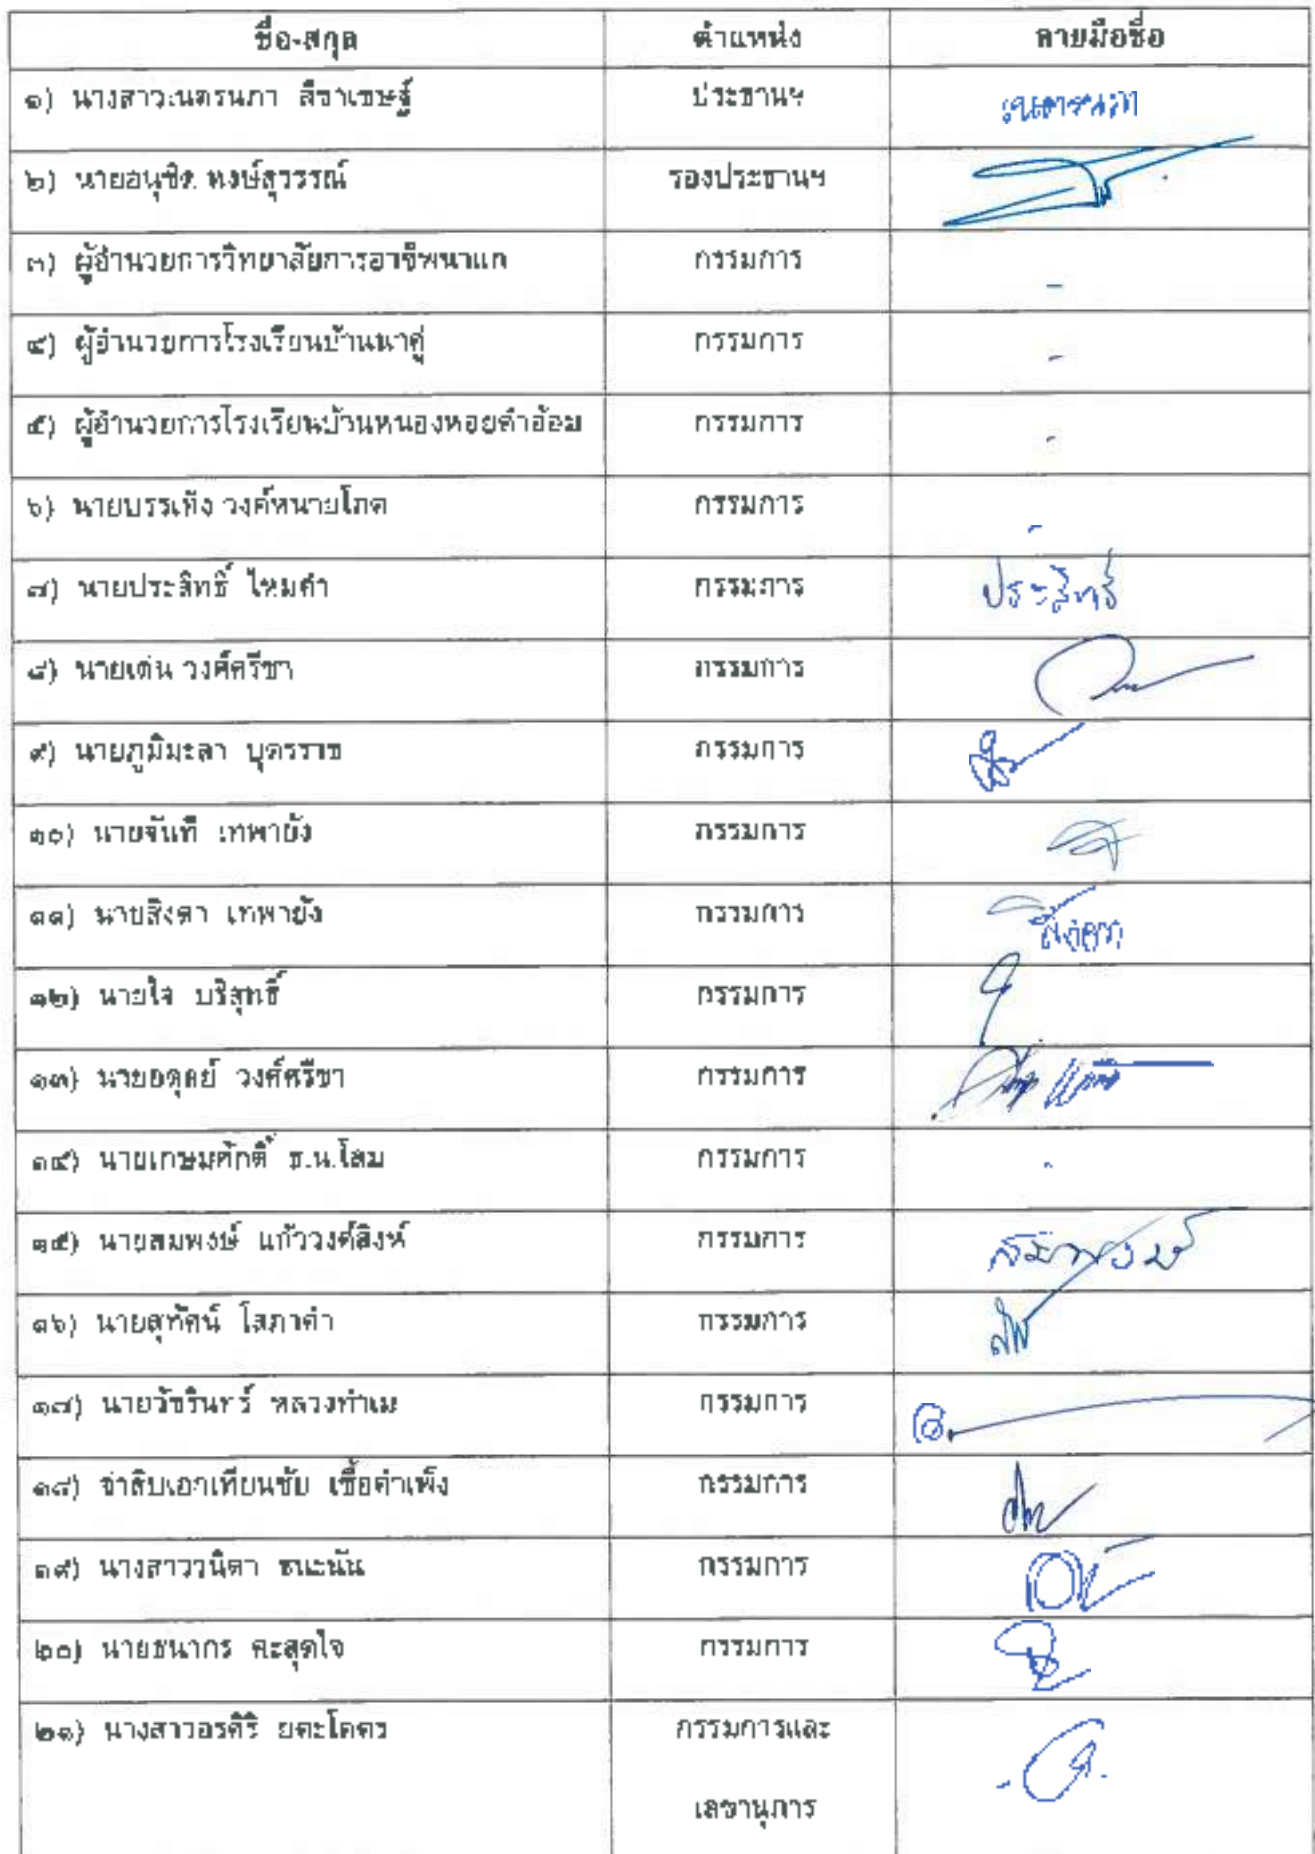 ชื่อ-สกุล ตำแหน่ง ลายมือชื่อ
๑) นางสาวเนตรนภา สีชาเชษฐ์ ประธานฯ เนตรนภา
๒) นายอนุชิต พงษ์สุวรรณ์ รองประธานฯ
๓) ผู้อำนวยการวิทยาลัยการอาชีพนาแก กรรมการ -
๔) ผู้อำนวยการโรงเรียนบ้านนาคู่ กรรมการ -
๕) ผู้อำนวยการโรงเรียนบ้านหนองหอยคำอ้อม กรรมการ -
๖) นายบรรเทิง วงค์หนายโกด กรรมการ -
๗) นายประสิทธิ์ ไหมคำ กรรมการ ประสิทธิ์
๘) นายเด่น วงค์ศรีชา กรรมการ
๙) นายภูมิมะลา บุตรราช กรรมการ
๑๐) นายจันที เทพายัง กรรมการ
๑๑) นายสิงดา เทพายัง กรรมการ สิงดา
๑๒) นายใจ บริสุทธิ์ กรรมการ
๑๓) นายอดุลย์ วงศ์ศรีชา กรรมการ
๑๔) นายเกษมศักดิ์ ธ.น.โสม กรรมการ -
๑๕) นายสมพงษ์ แก้ววงศ์สิงห์ กรรมการ สมพงษ์
๑๖) นายสุทัศน์ โสภาคำ กรรมการ
๑๗) นายวัชรินทร์ หลวงทำเม กรรมการ
๑๘) จ่าสิบเอกเทียนชัย เชื้อคำเพ็ง กรรมการ
๑๙) นางสาววนิดา ชนะนัน กรรมการ
๒๐) นายธนากร คะสุดใจ กรรมการ
๒๑) นางสาวอรศิริ ยตะโคตร กรรมการและ
เลขานุการ